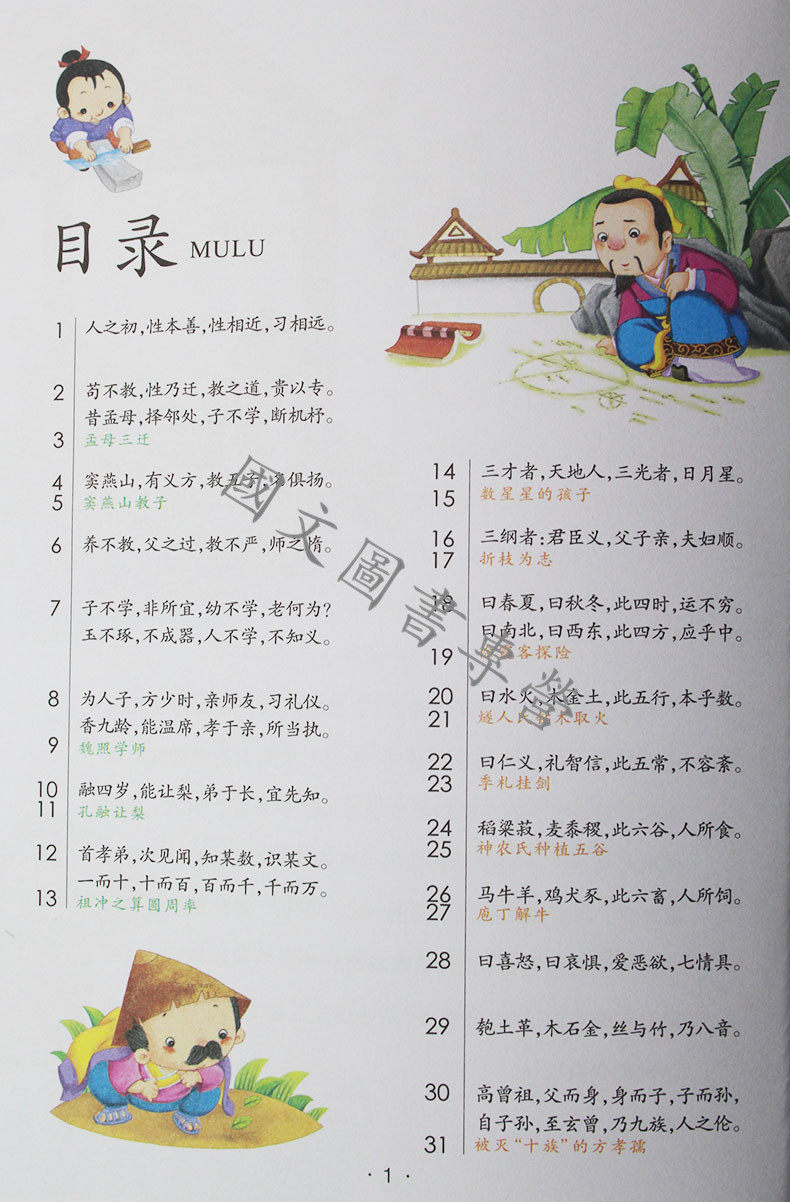 目录 MULU
1 人之初,性本善,性相近,习相远。
2 苟不教,性乃迁,教之道,贵以专。
昔孟母,择邻处,子不学,断机杼。
3 孟母三迁
4 窦燕山,有义方,教五子,名俱扬。
5 窦燕山教子
6 养不教,父之过,教不严,师之惰。
7 子不学,非所宜,幼不学,老何为?
玉不琢,不成器,人不学,不知义。
8 为人子,方少时,亲师友,习礼仪。
香九龄,能温席,孝于亲,所当执。
9 魏照学师
10 融四岁,能让梨,弟于长,宜先知。
11 孔融让梨
12 首孝弟,次见闻,知某数,识某文。
一而十,十而百,百而千,千而万。
13 祖冲之算圆周率
14 三才者,天地人,三光者,日月星。
15 数星星的孩子
16 三纲者:君臣义,父子亲,夫妇顺。
17 折枝为志
18 曰春夏,曰秋冬,此四时,运不穷。
曰南北,曰西东,此四方,应乎中。
19 客探险
20 曰水火,木金土,此五行,本乎数。
21 燧人氏木取火
22 曰仁义,礼智信,此五常,不容紊。
23 季札挂剑
24 稻粱菽,麦黍稷,此六谷,人所食。
25 神农氏种植五谷
26 马牛羊,鸡犬豕,此六畜,人所饲。
27 庖丁解牛
28 曰喜怒,曰哀惧,爱恶欲,七情具。
29 匏土革,木石金,丝与竹,乃八音。
30 高曾祖,父而身,身而子,子而孙,
自子孙,至玄曾,乃九族,人之伦。
31 被灭“十族”的方孝孺
國文圖書專營
·1·